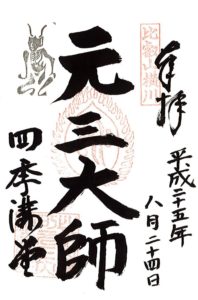 奉拝
比叡山横川
平成二十五年
八月二十四日
元三大師
四季講堂